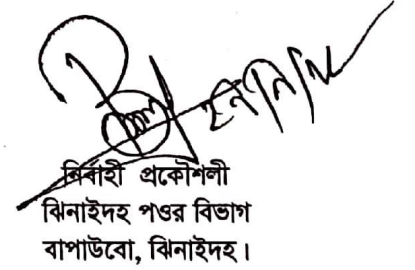 নির্বাহী প্রকৌশলী
ঝিনাইদহ পওর বিভাগ
বাপাউবো, ঝিনাইদহ।